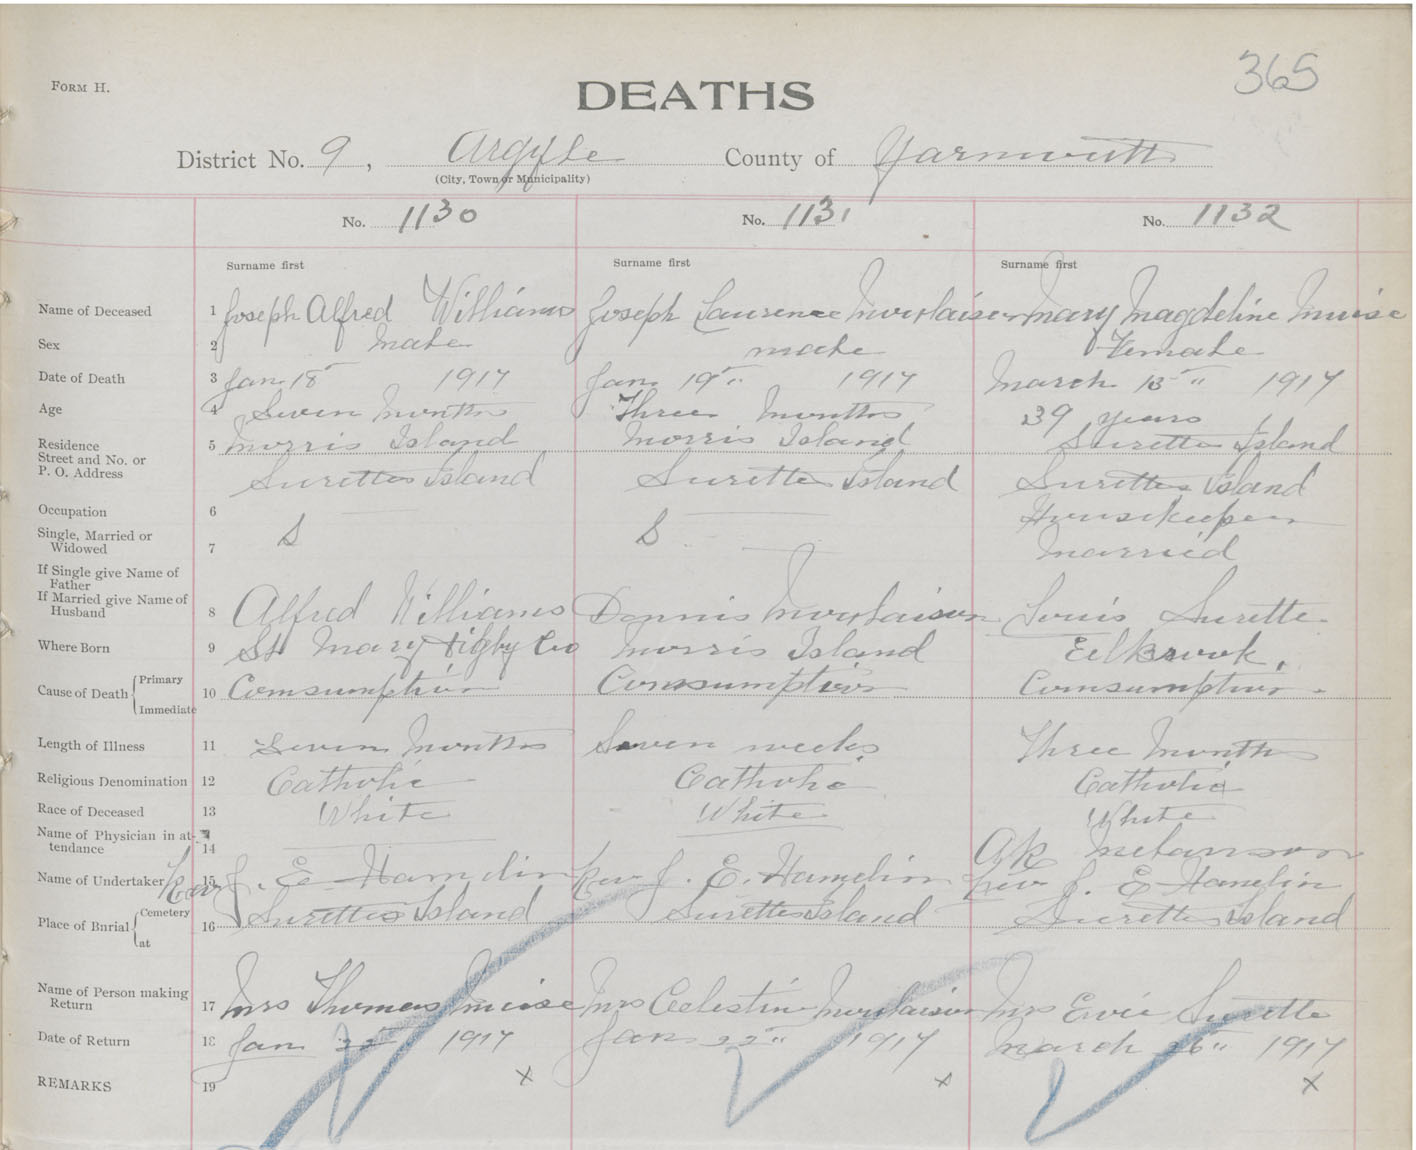 365
FORM H.
DEATHS
District No. 9, Argyle County of Yarmouth
(City, Town or Municipality)
No. 1130 No. 1131 No. 1132
Surname first Surname first Surname first
Name of Deceased 1 Joseph Alfred Williams Joseph Laurence Mary Magdeline Muise
Sex 2 Male male Female
Date of Death 3 Jan 18" 1917 Jan 19" 1917 March 13" 1917
Age 4 Seven Months Three Months 39 years
Residence Street and No. or P. O. Address 5 Morris Island Morris Island Surettes Island
Surettes Island Surettes Island Surettes Island
Occupation 6 Housekeeper
Single, Married or Widowed 7 S S Married
If Single give Name of Father
If Married give Name of Husband 8 Alfred Williams Dennis Louis Surette
Where Born 9 St Mary Digby Co Morris Island Eelbrook.
Cause of Death { Primary Immediate 10 Comsumption Consumption Comsumption.
Length of Illness 11 Seven Months Seven weeks Three Months
Religious Denomination 12 Catholic Catholic Catholic
Race of Deceased 13 White White White
Name of Physician in attendance 14
Name of Undertaker 15 Rev J. E Hamelin Rev J. E. Hamelin Rev J. E Hamelin
Place of Burial { Cemetery at 16 Surettes Island Surettes Island Surettes Island
Name of Person making Return 17 Mrs Thomas Muise Mrs Celestin Mrs Evié Surette
Date of Return 18 Jan 22" 1917 Jan 22" 1917 March 26" 1917
REMARKS 19 x x x